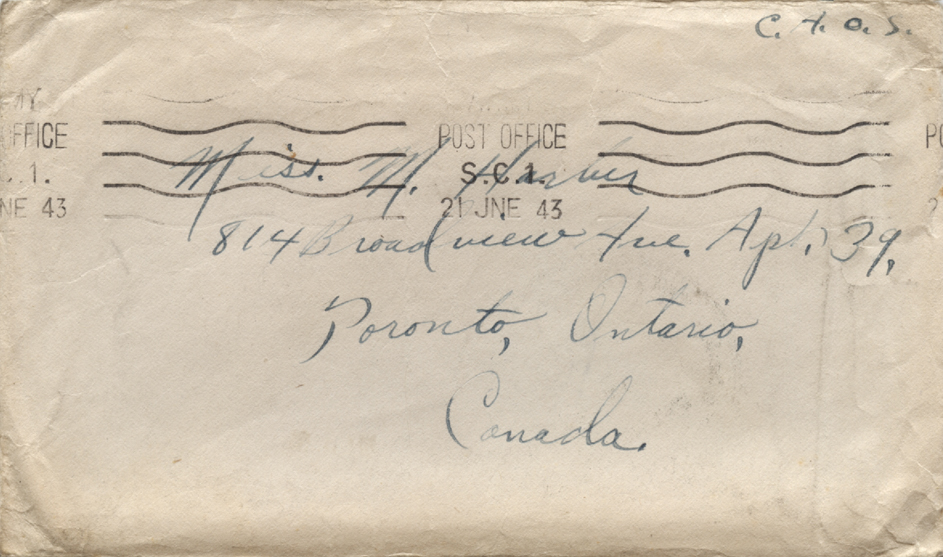 C. A. O. S.
MY
FFICE POST OFFICE PO
.1. S.C.1.
NE 43 21 JNE 43 2
Miss. M.
814 Broadview Ave. Apt. 39,
Toronto, Ontario,
Canada.